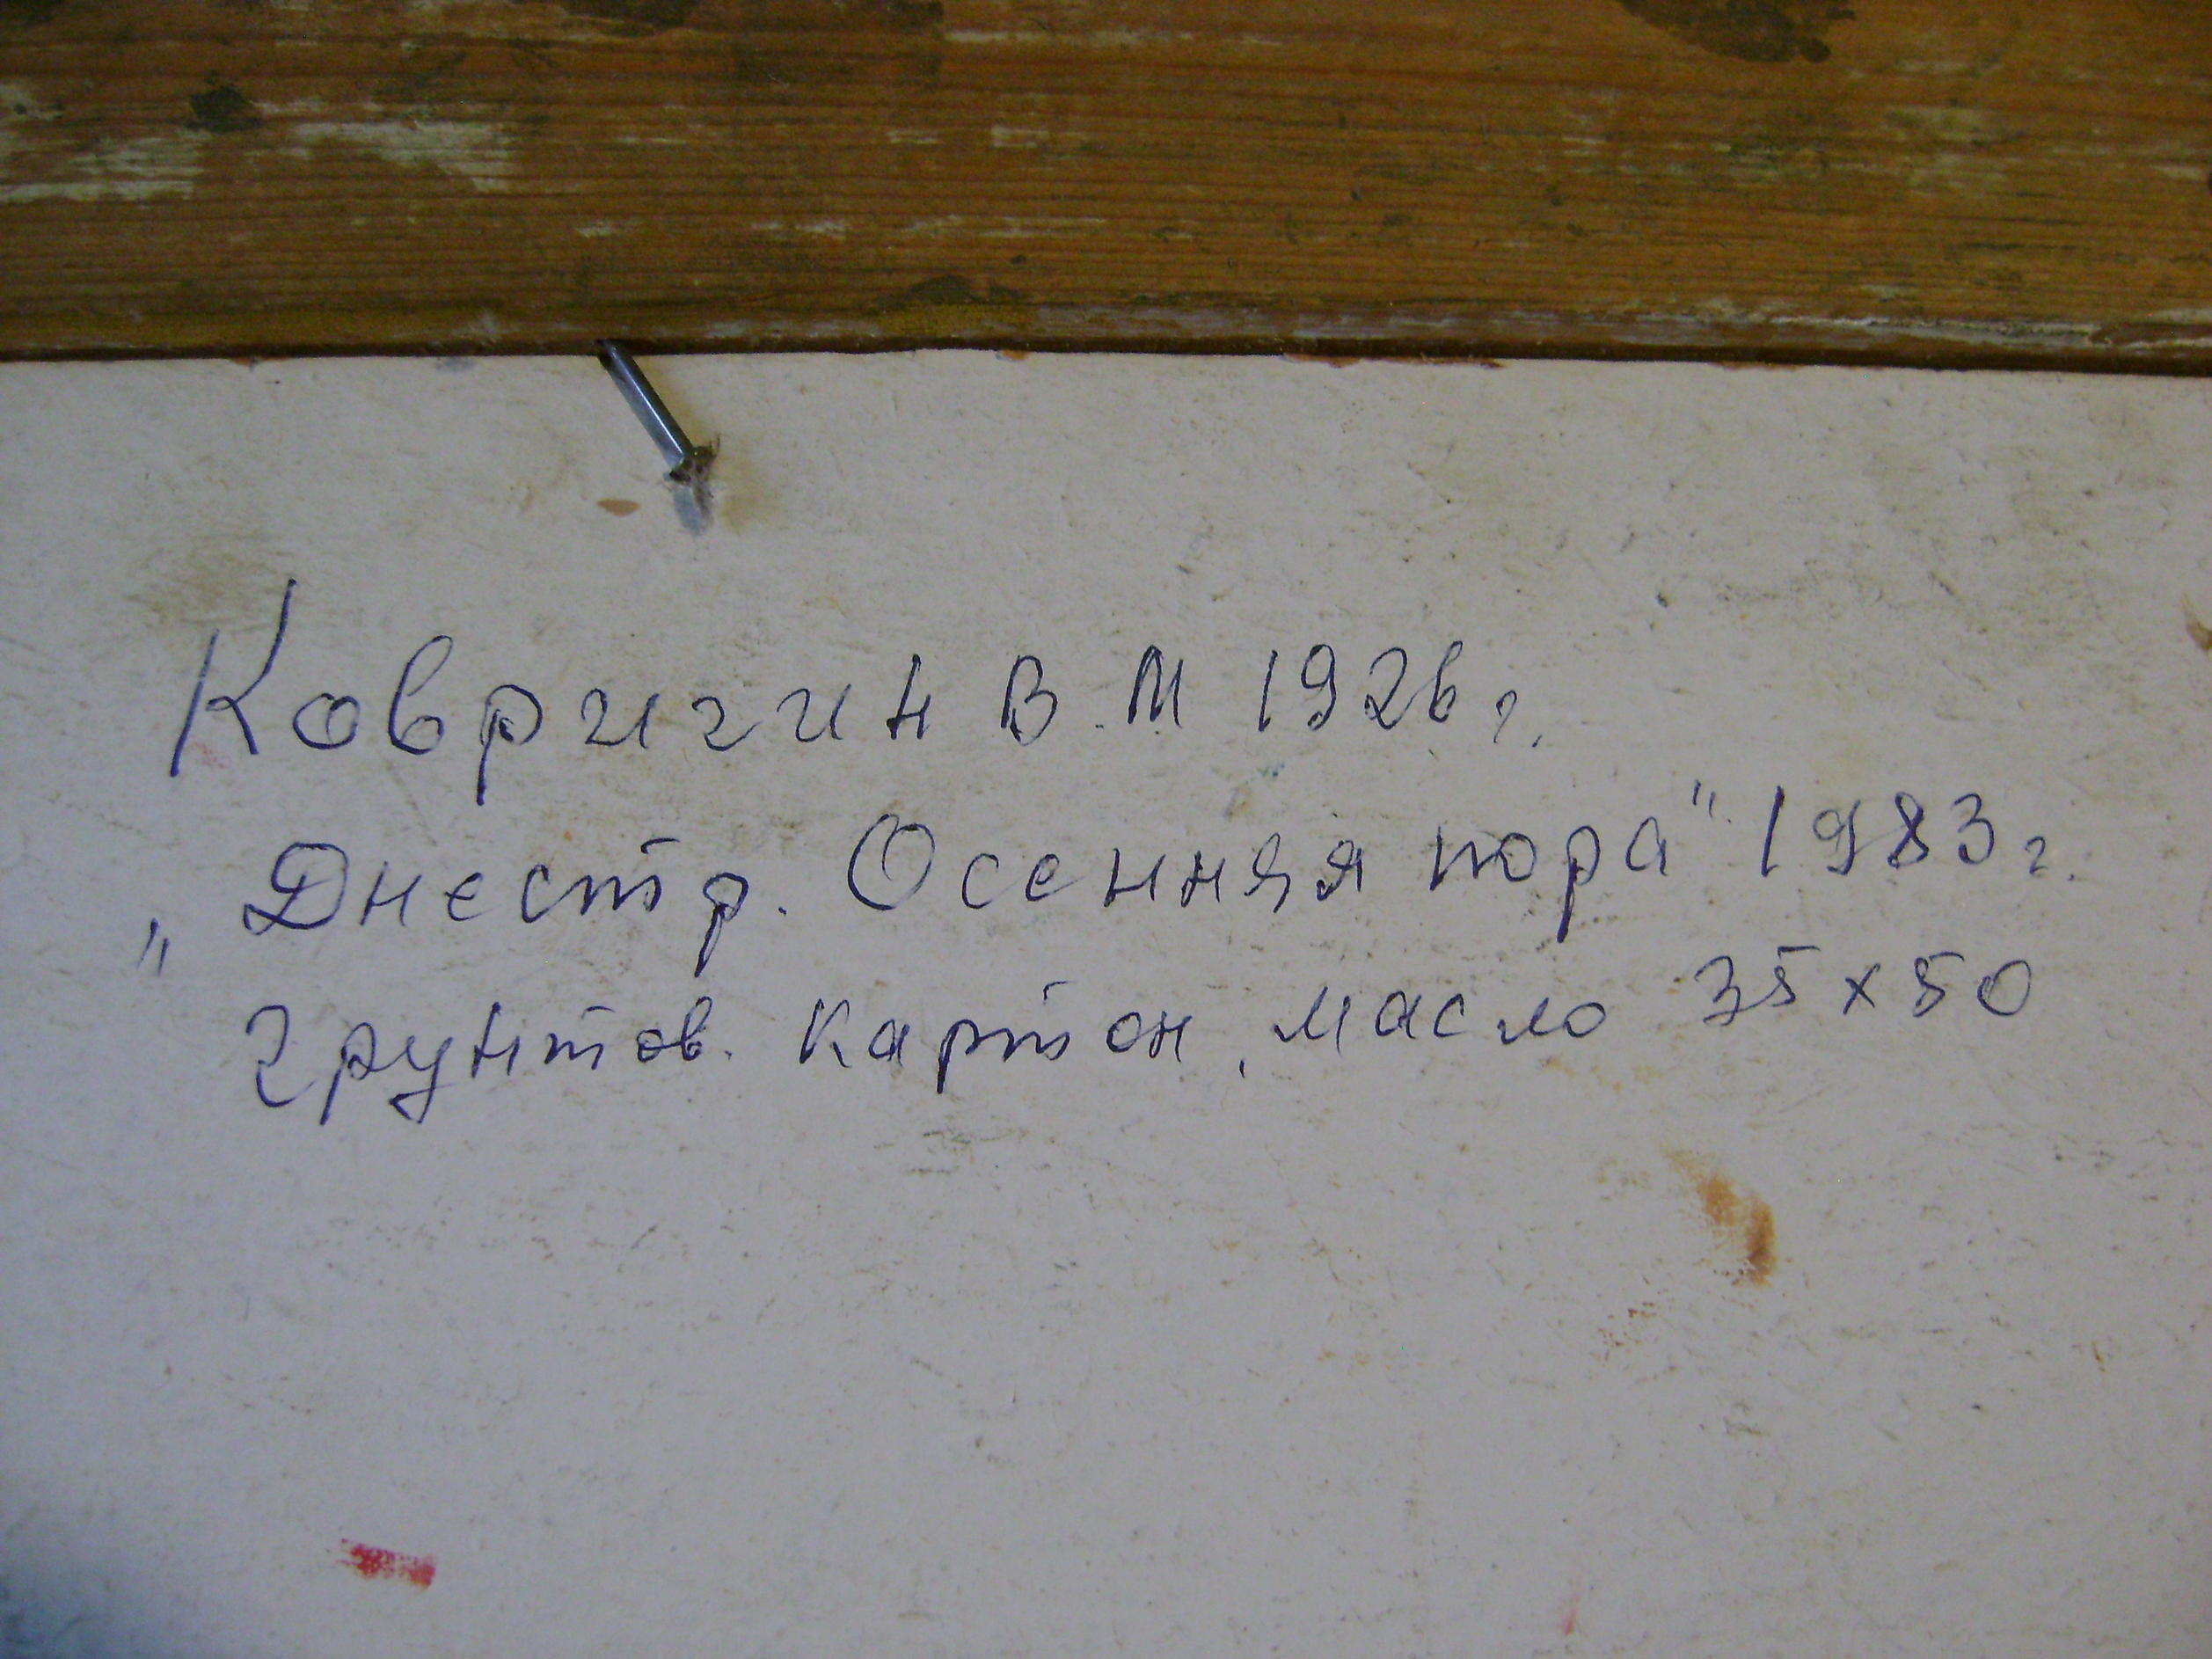 Ковригин В.М 1926г.
„Днестр. Осенняя пора" 1983г.
грунтов. картон, масло 35х50